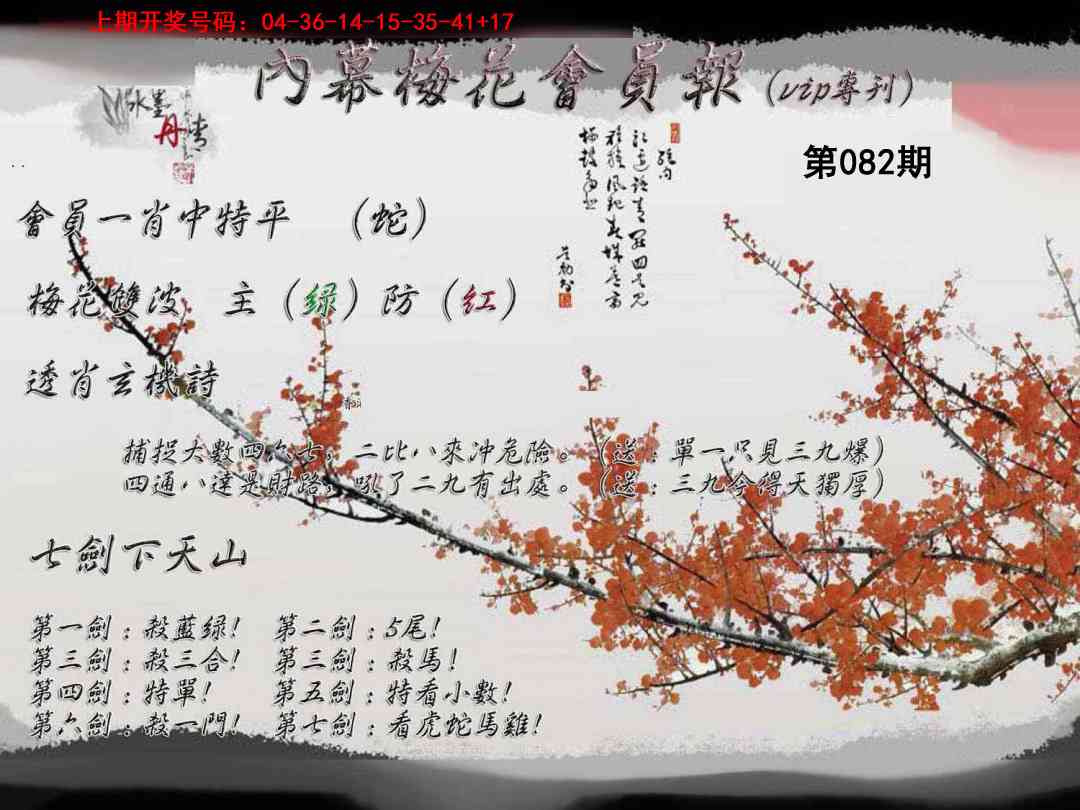 上期开奖号码：04-36-14-15-35-41+17
內幕梅花會員報（vip專刊）
水墨丹青
第082期
會員一肖中特平　（蛇）
梅花雙波　主（绿）防（红）
透肖玄機詩
捕捉大數四六七，二比八來沖危險。（送：單一只見三九爆）
四通八達是財路，吼了二九有出處。（送：三九今得天獨厚）
七劍下天山
第一劍：殺藍绿！　第二劍：5尾！
第三劍：殺三合！　第三劍：殺馬！
第四劍：特單！　第五劍：特看小數！
第六劍：殺一門！　第七劍：看虎蛇馬雞！